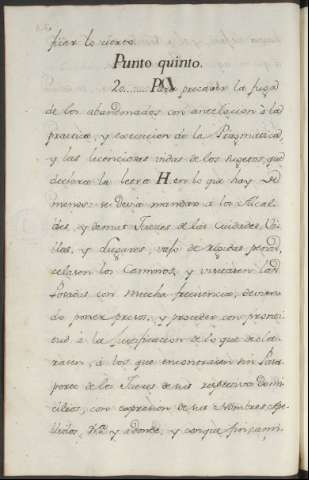 fiar lo cierto.
Punto quinto.
20....... Para precaver la fuga
de los abandonados con antelacion à la
practica, y execucion de la Pragmatica,
y las licenciosas vidas de los sugetos, que
declara la letra H. en lo que hay de
menos: se devia mandar à los Alcal
des, y demas Jueces de las Ciudades, Vi
llas, y Lugares, vajo de rigidas penas,
celasen los Caminos, y visitasen las
Posadas con mucha frecuencia, devien
do poner presos, y proceder con pronti
tud à la justificacion de lo que decla
rasen, à los que encontrasen sin Pasa
porte de los Jueces de sus respectivos Domi
cilios, con expresion de sus Nombres, Ape
llidos, y adonde, y con que fin cami